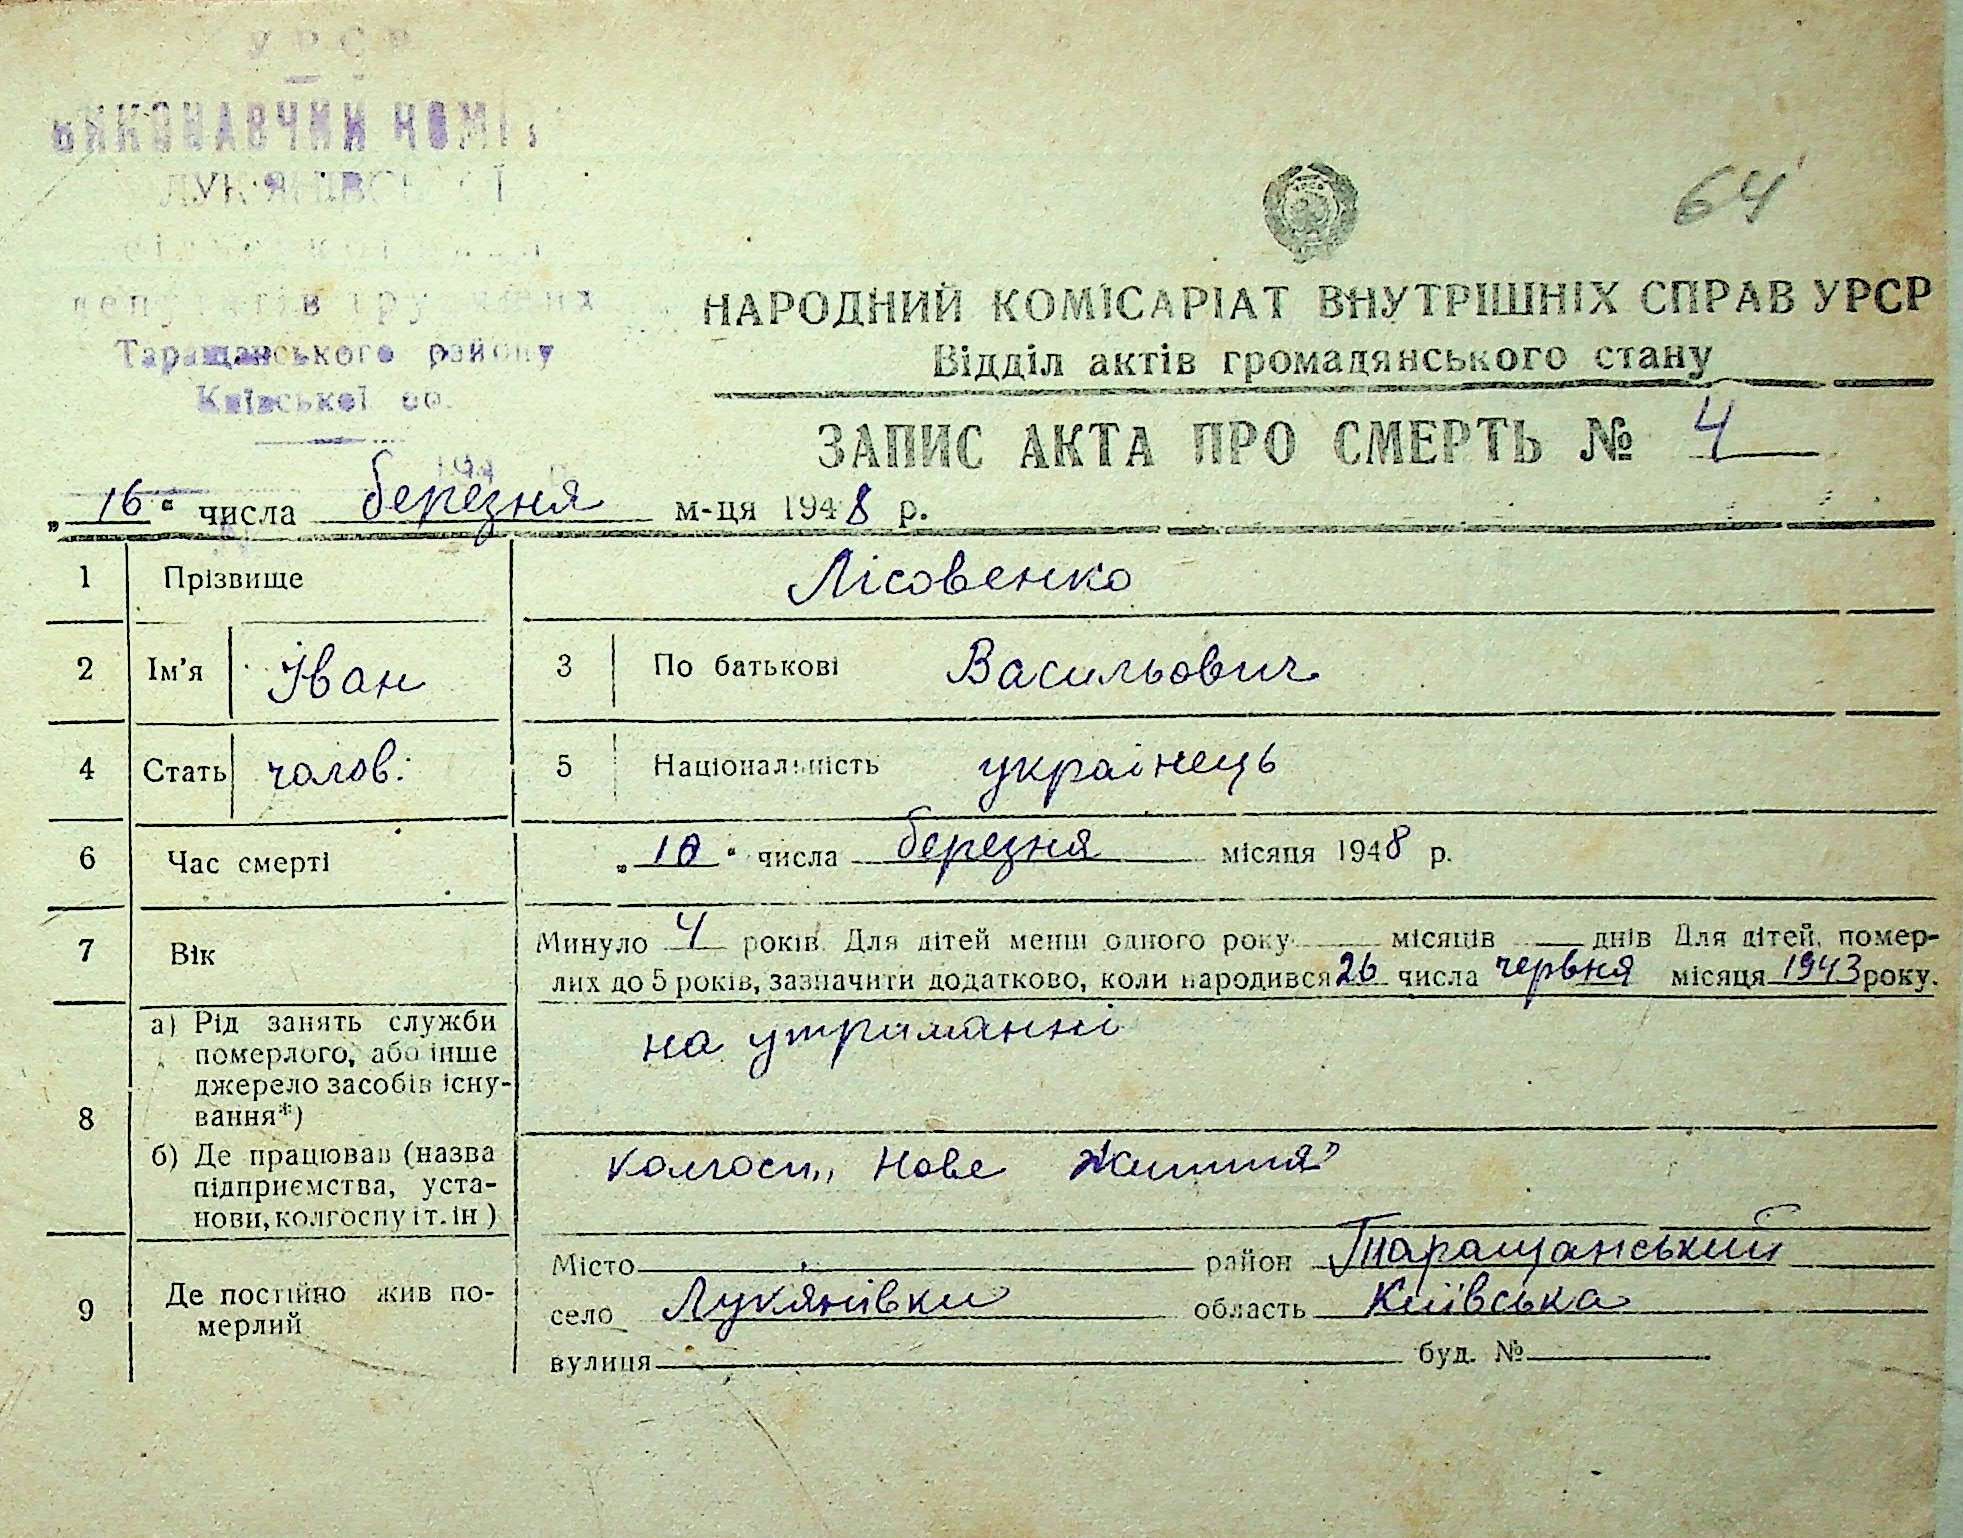 УРСР
ВИКОНАВЧИЙ КОМІ
ЛУК'ЯНІВСЬКОЇ
депутатів трудящих
Таращанського району
Київської об.
194 р.
64
НАРОДНИЙ КОМІСАРІАТ ВНУТРІШНІХ СПРАВ УРСР
Відділ актів громадянського стану
ЗАПИС АКТА ПРО СМЕРТЬ № 4
„16“ числа березня м-ця 1948 р.
1 Прізвище Лісовенко
2 Ім'я Іван 3 По батькові Васильович
4 Стать чолов. 5 Національність украінець
6 Час смерті „10“ числа березня місяця 1948 р.
7 Вік Минуло 4 років. Для дітей менш одного року місяців днів Для дітей, помер-
лих до 5 років, зазначити додатково, коли народився 26 числа червня місяця 1943 року.
8 а) Рід занять служби
померлого, або інше
джерело засобів існу-
вання*)
на утриманні
б) Де працював (назва
підприємства, уста-
нови, колгоспу і т. ін)
колгосп „Нове Життя”
9 Де постійно жив по-
мерлий
Місто район Таращанський
село Лукянівки область Київська
вулиця буд. №